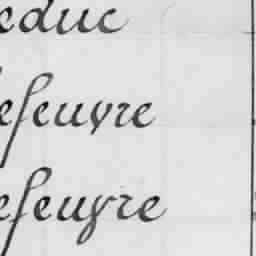 educ
efeuvre
efeuvre